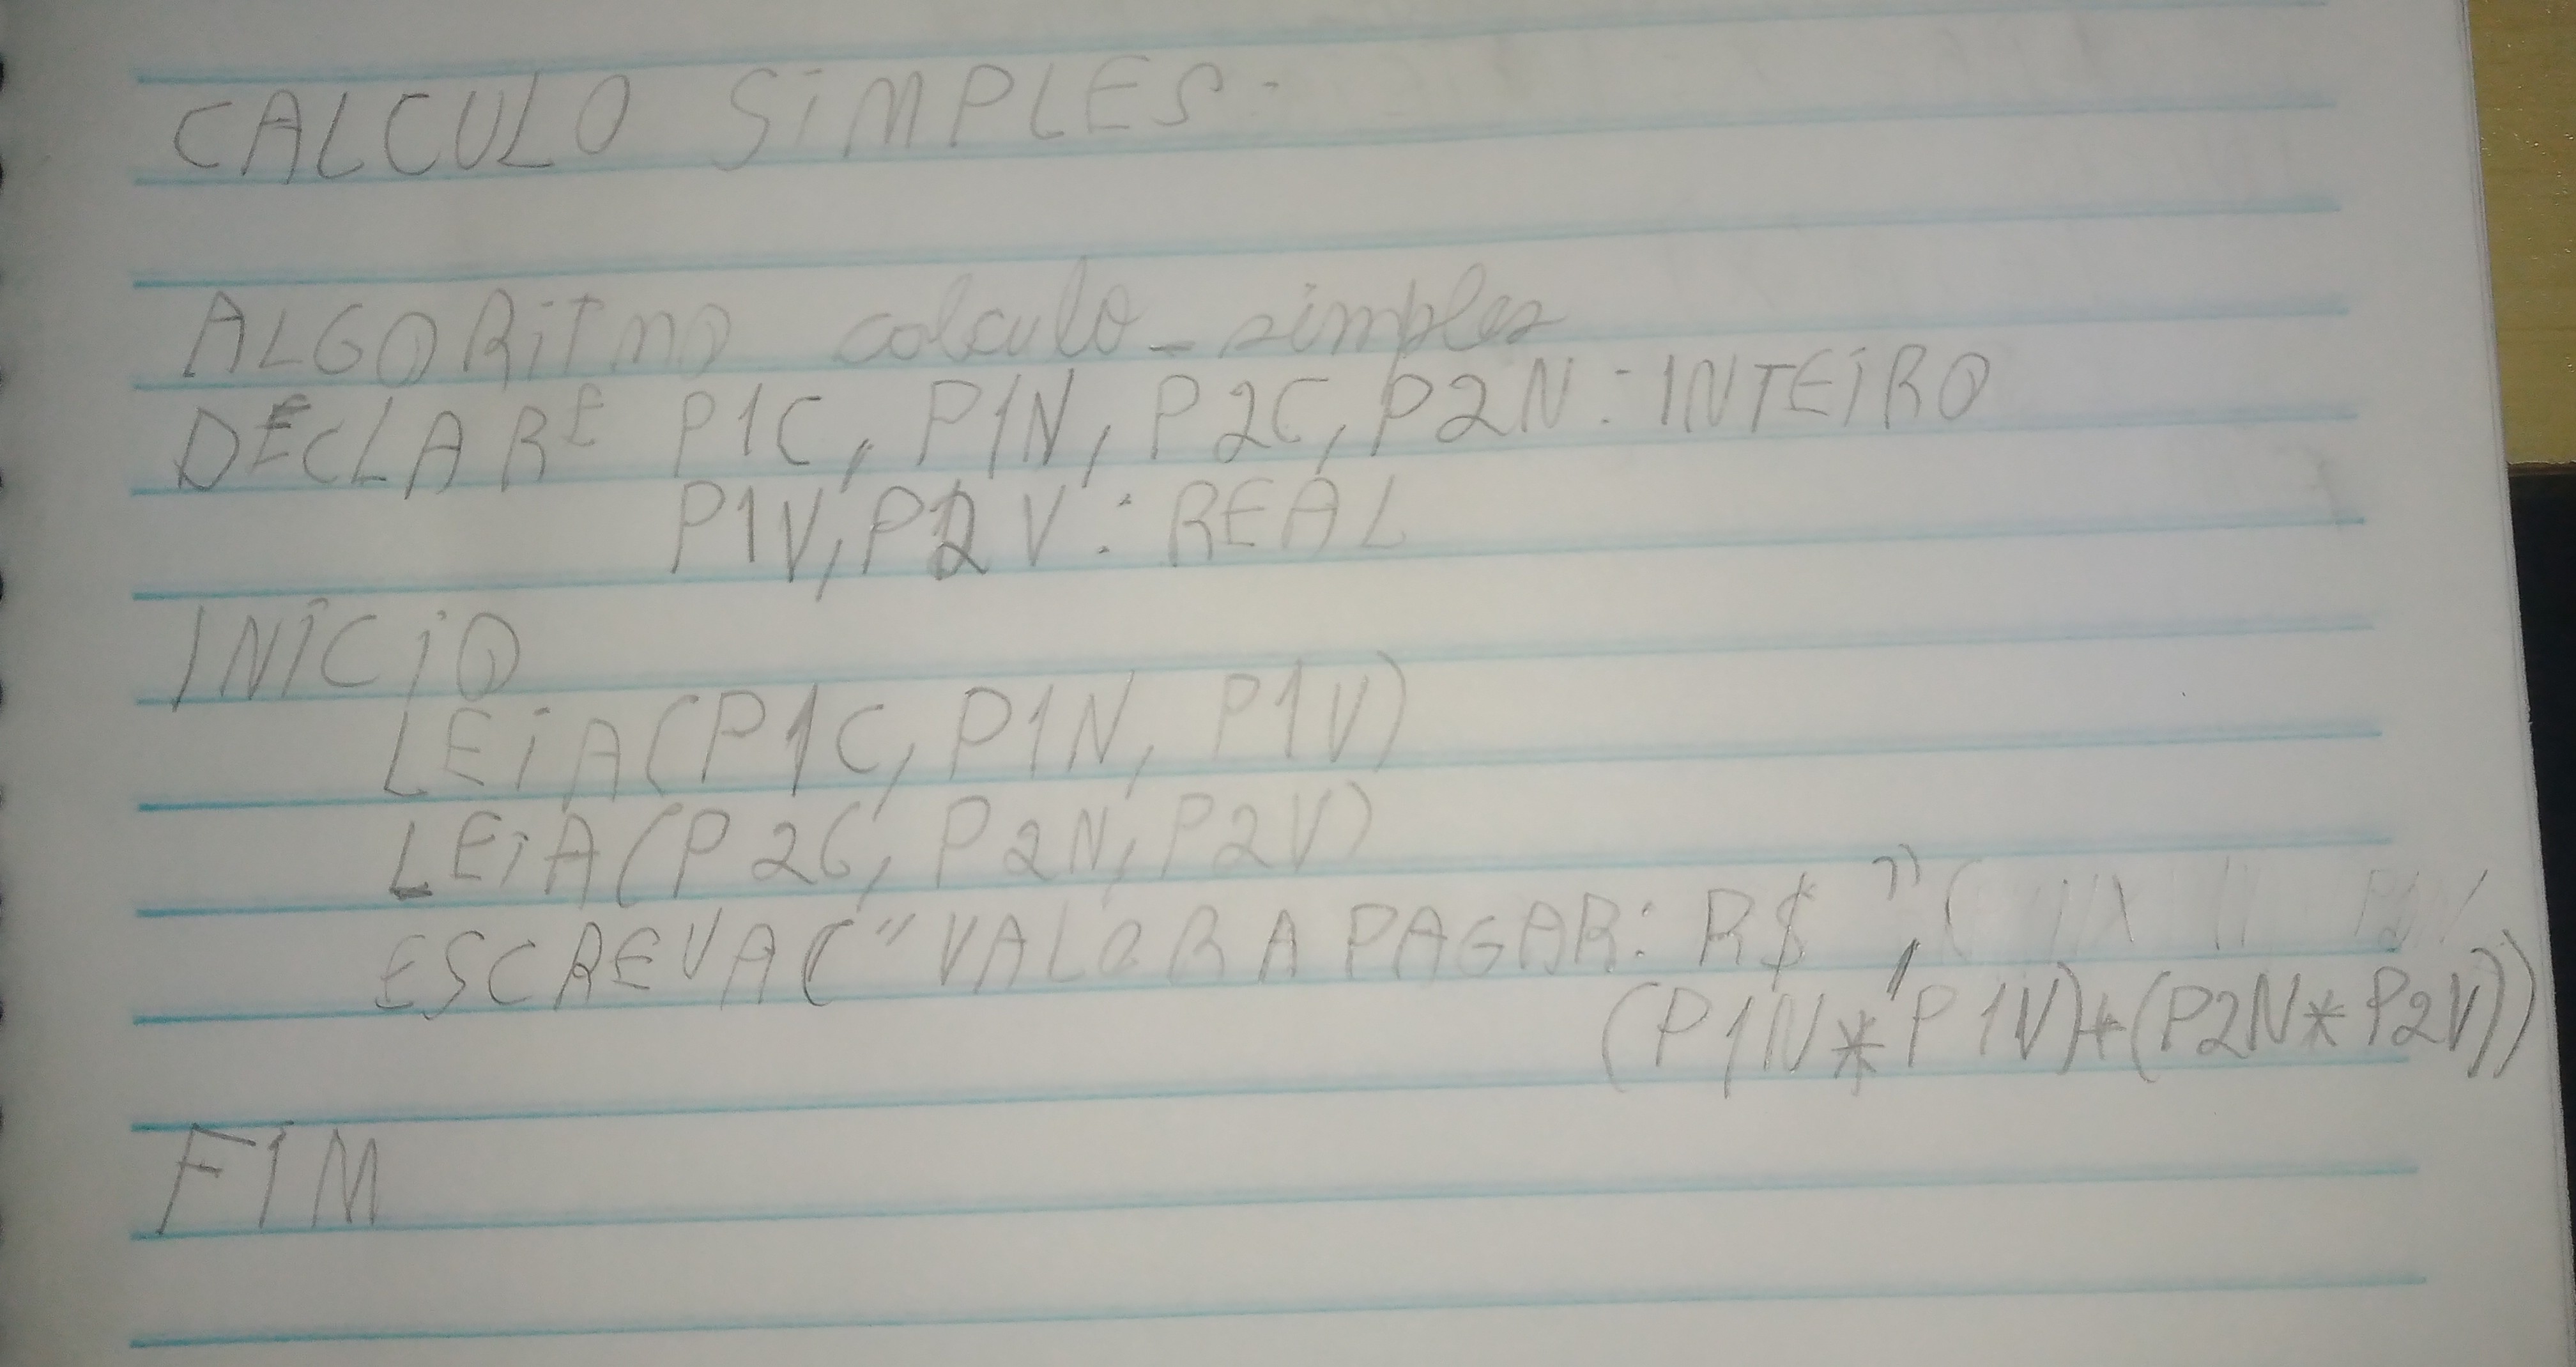 CALCULO SIMPLES.
ALGORITMO calculo_simples
DECLARE P1C, P1N, P2C, P2N : INTEIRO
P1V, P2V : REAL
INÍCIO
LEIA(P1C, P1N, P1V)
LEIA(P2C, P2N, P2V)
ESCREVA("VALOR A PAGAR: R$ ",
(P1N*P1V)+(P2N*P2V))
FIM